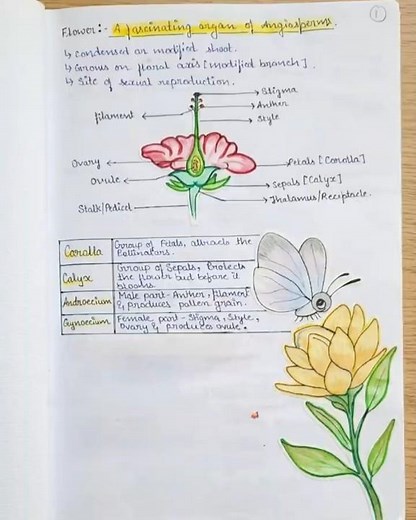 1
Flower:- A fascinating organ of Angiosperms.
↳ Condensed or modified shoot.
↳ Grows on floral axis [modified branch].
↳ Site of sexual reproduction.
Stigma
Anther
filament
Style
Ovary
Petals [Corolla]
ovule
Sepals [Calyx]
Thalamus/Receptacle.
Stalk/Pedicel
Corolla Group of Petals, attracts the
Pollinators.
Calyx Group of Sepals, Protects
the flower bud before it
blooms.
Androecium Male part - Anther, filament
& produces pollen grain.
Gynoecium Female part - Stigma, Style,
Ovary & produces ovule.